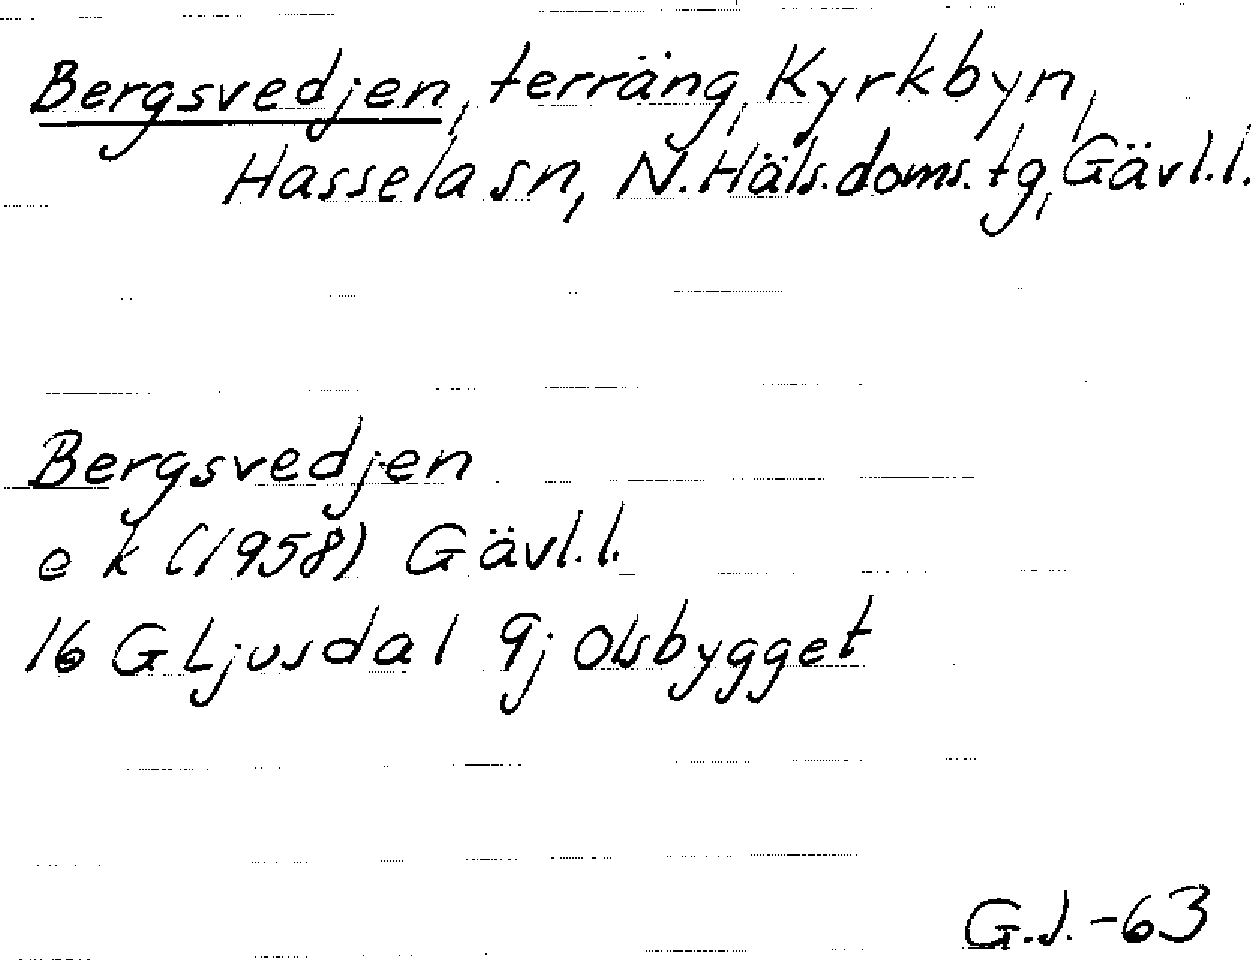 Bergsvedjen, terräng, Kyrkbyn,
Hassela sn, N. Häls. doms. tg, Gävl. l.
Bergsvedjen
e k (1958) Gävl. l.
16 G Ljusdal 9j Olsbygget
G.J. -63